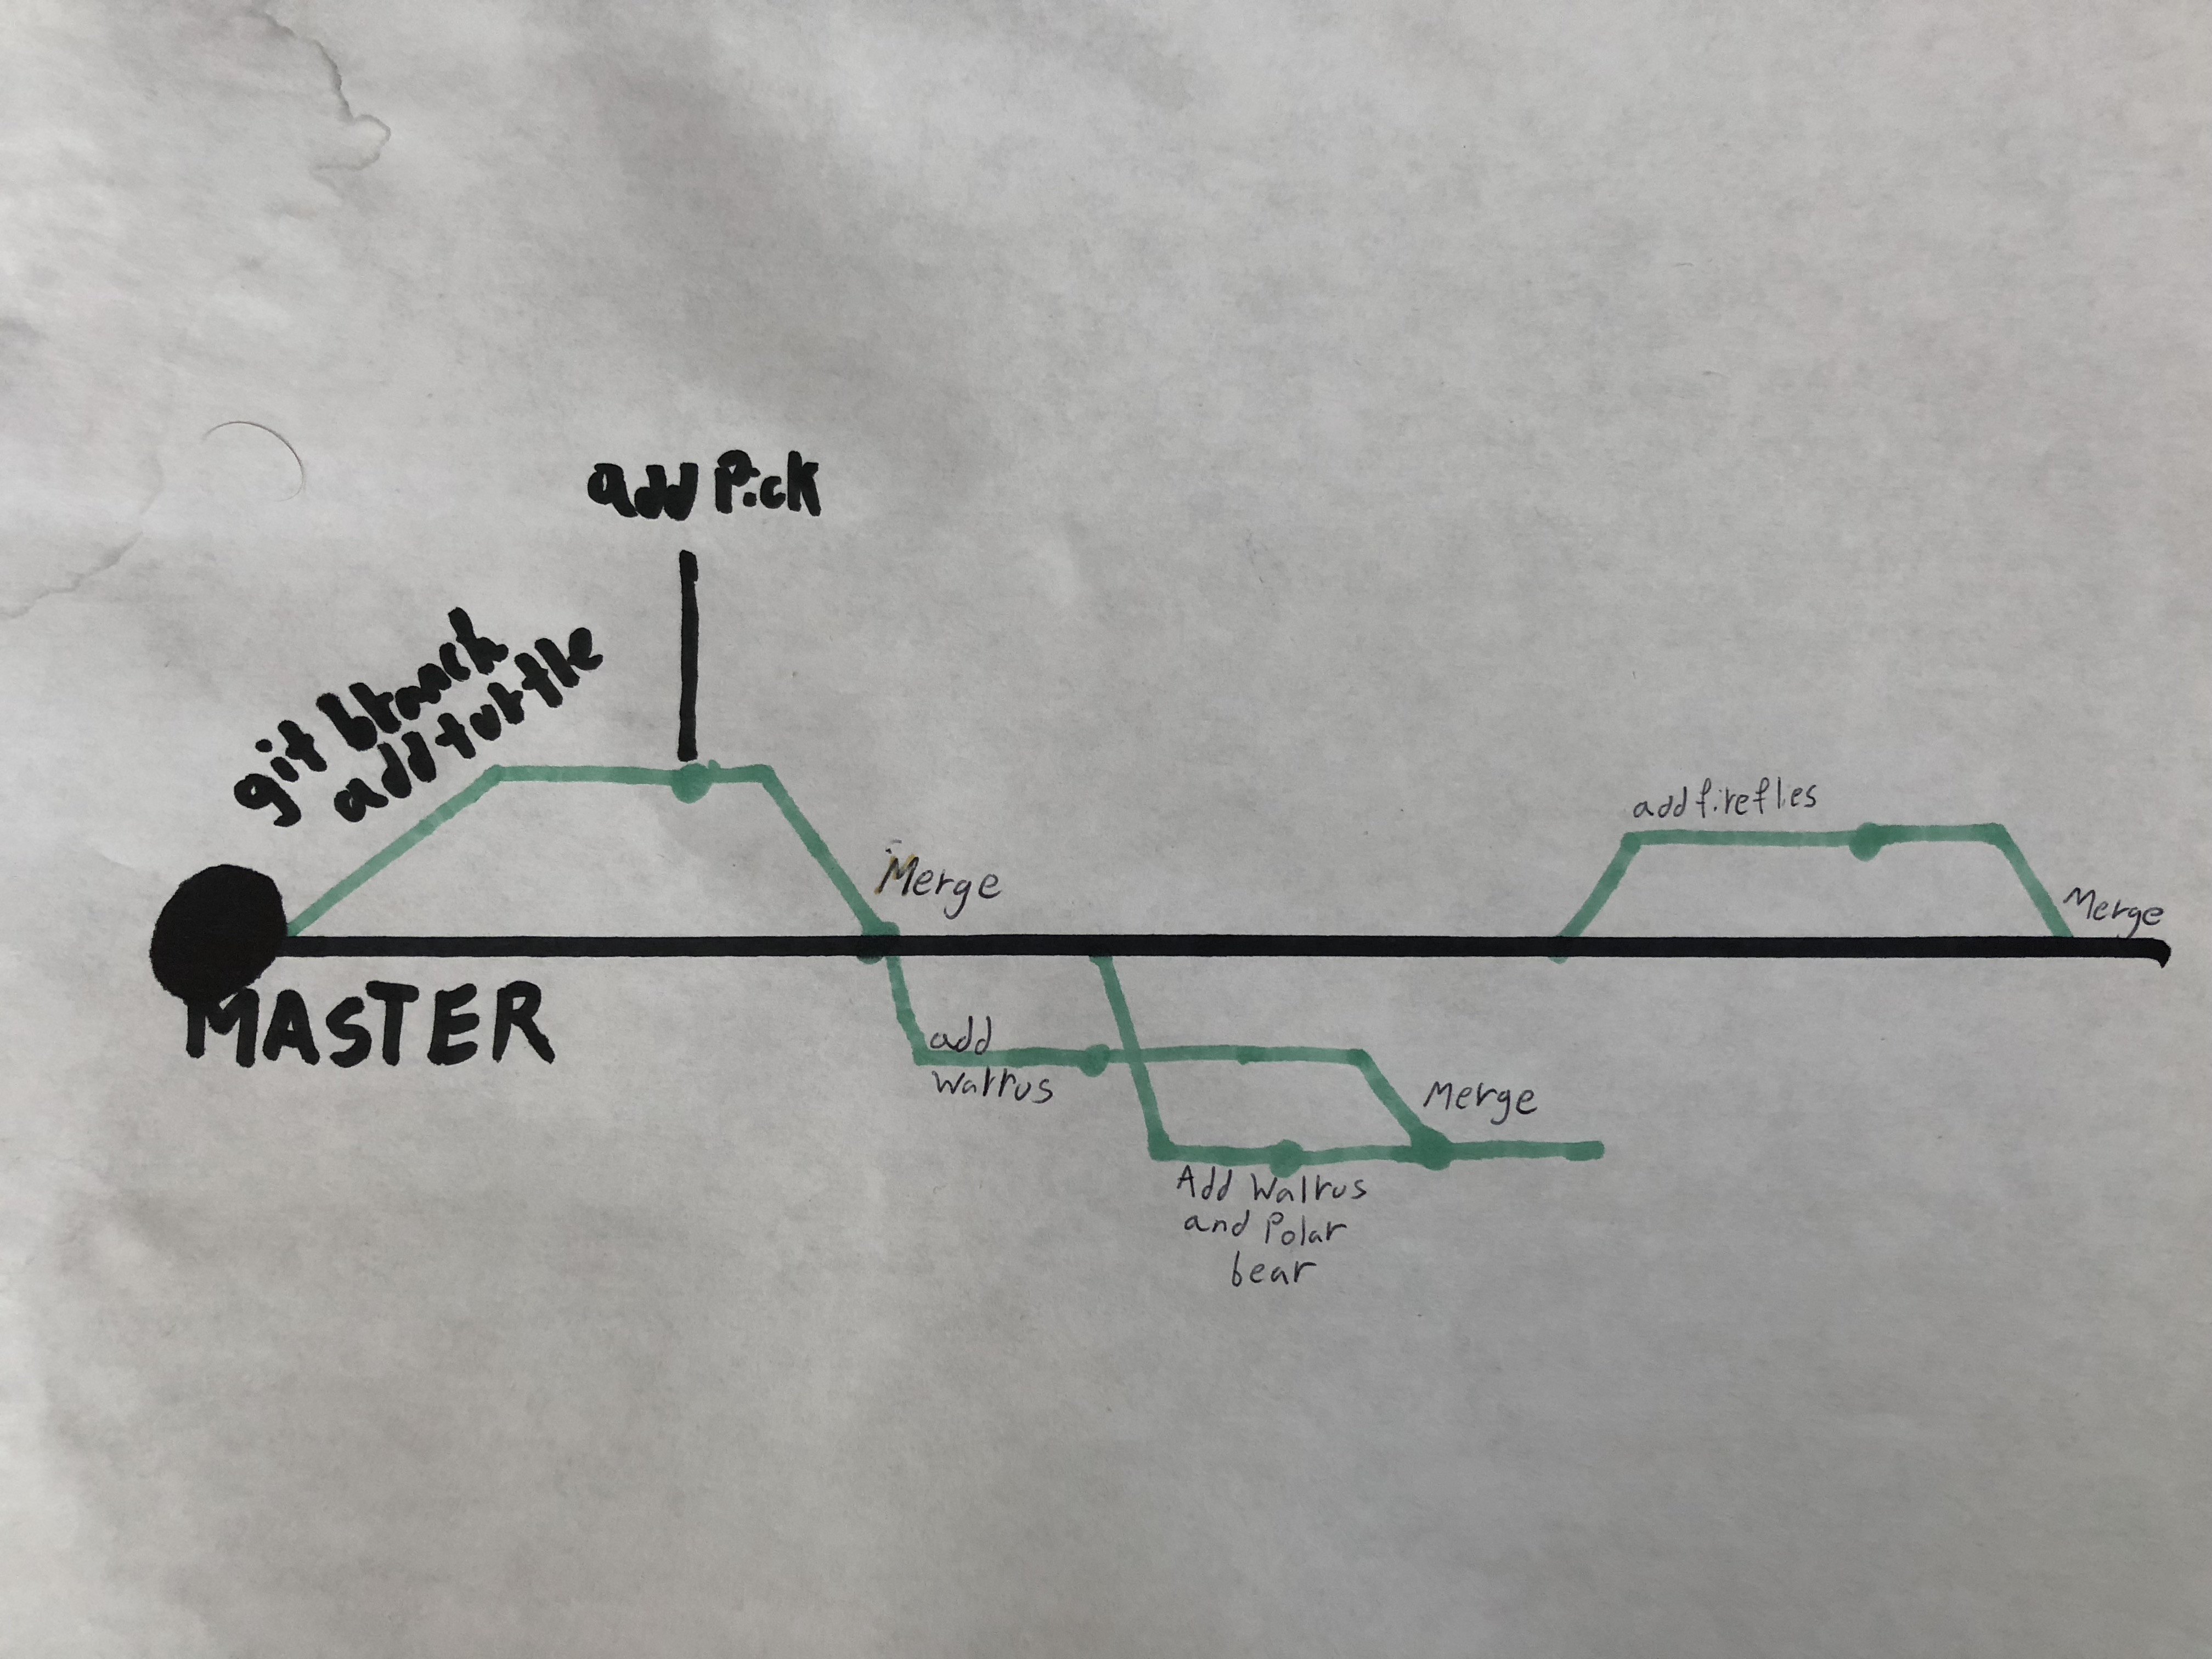 add Pick
git branch
add turtle
MASTER
Merge
add
Walrus
Add Walrus
and Polar
bear
Merge
add fireflies
Merge